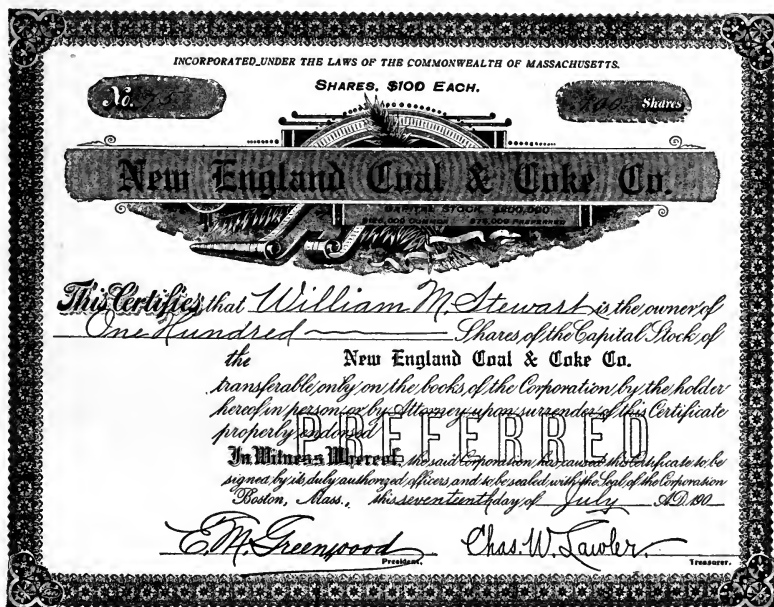 INCORPORATED UNDER THE LAWS OF THE COMMONWEALTH OF MASSACHUSETTS.
No. Shares
SHARES, $100 EACH.
New England Coal & Coke Co.
CAPITAL STOCK $200,000
$125,000 COMMON $75,000 PREFERRED
This Certifies that William M. Stewart is the owner of
One Hundred Shares of the Capital Stock of
the New England Coal & Coke Co.
transferable only on the books of the Corporation by the holder
hereof in person or by Attorney upon surrender of this Certificate
properly endorsed
PREFERRED
In Witness Whereof, the said Corporation has caused this Certificate to be
signed by its duly authorized officers and to be sealed with the Seal of the Corporation
Boston, Mass., this seventeenth day of July A.D. 190
E. M. Greenwood Chas. W. Lawler.
President. Treasurer.